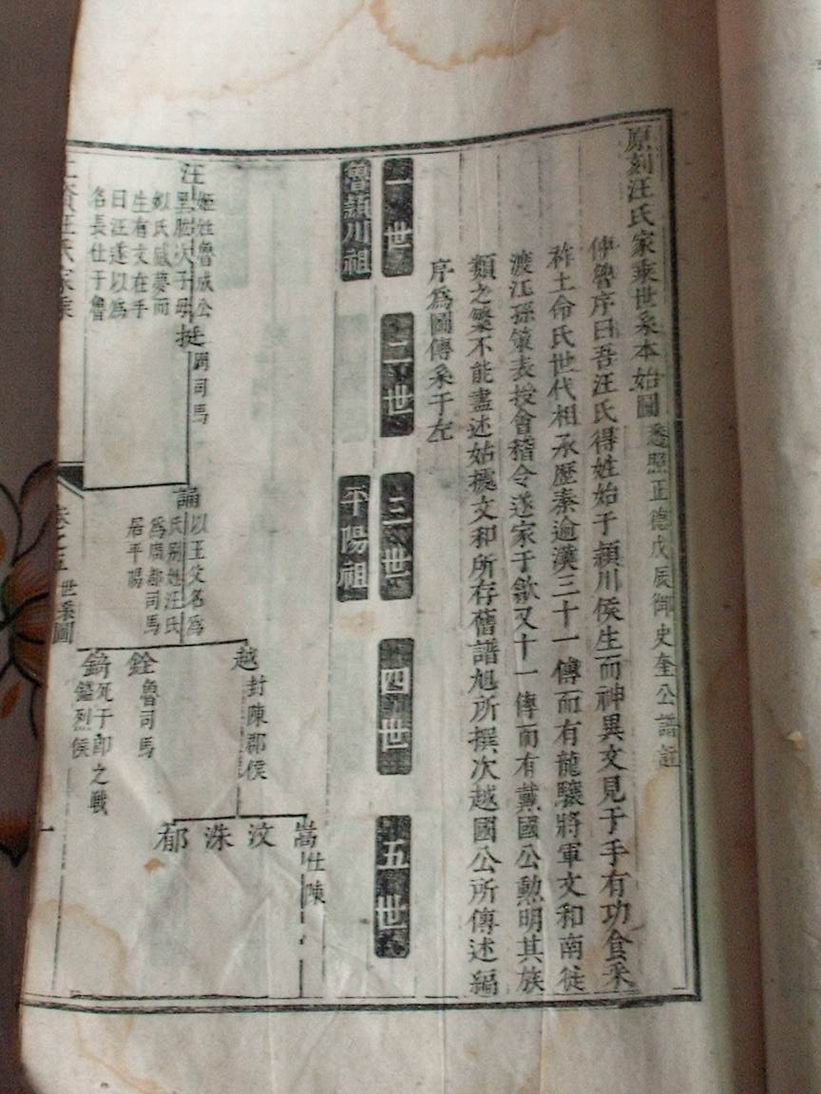 原刻汪氏家乘世系本始圖 悉照正德戊辰御史奎公譜註
仲魯序曰吾汪氏得姓始于潁川侯生而神異文見于手有功食采
祚土命氏世代相承歷秦逾漢三十一傳而有龍驤將軍文和南徙
渡江孫策表授會稽令遂家于歙又十一傳而有戴國公勲明其族
類之繁不能盡述姑摭文和所存舊譜旭所撰次越國公所傳述編
序為圖傳系于左
一世 二世 三世 四世 五世
魯潁川祖 平陽祖
嵩 仕陳
汶
洙
郁
越 封陳郡侯
銓 魯司馬
錡 死于郎之戰
謚烈侯
誦 以王父名為
氏別姓汪氏
為周都司馬
居平陽
挺 周司馬
汪 姬姓魯成公
黑肱次子母
姒氏感夢而
生有文在手
曰汪遂以為
名長仕于魯
汪氏家乘
卷之五 世系圖
一